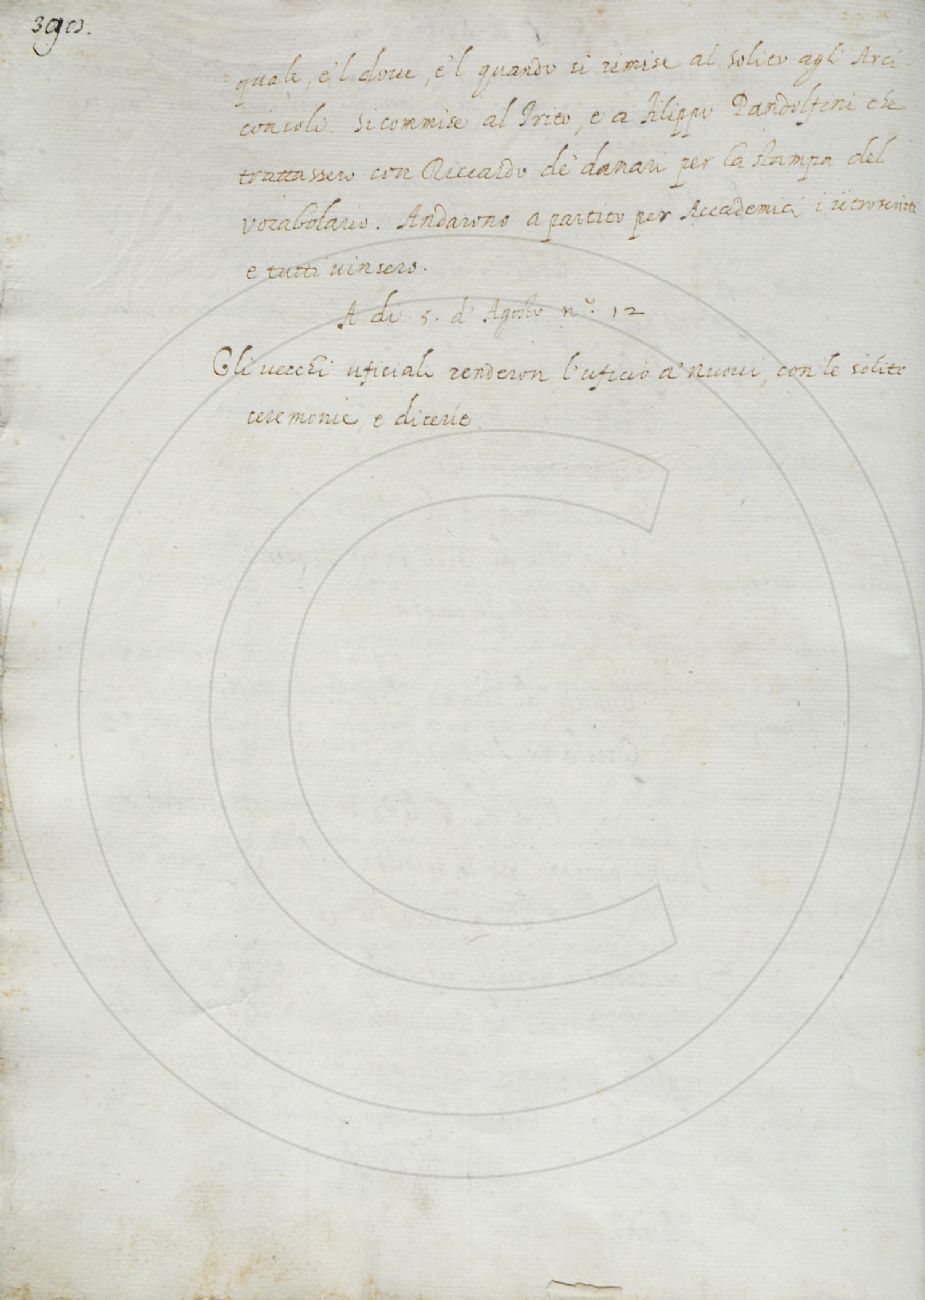 390.
quale, e'l doue, e'l quando si rimise al solito agli Arci
consoli. Si commise al Trito, e a Filippo Pandolfini che
trattassero con Riccardo de' danari per la stampa del
vocabolario. Andarono a partito per Accademici i
e tutti uinsero.
A dì 5. d'Agosto n.º 12
Gli uecchi uficiali renderon l'uficio a' nuoui, con le solite
ceremonie, e dicerie.